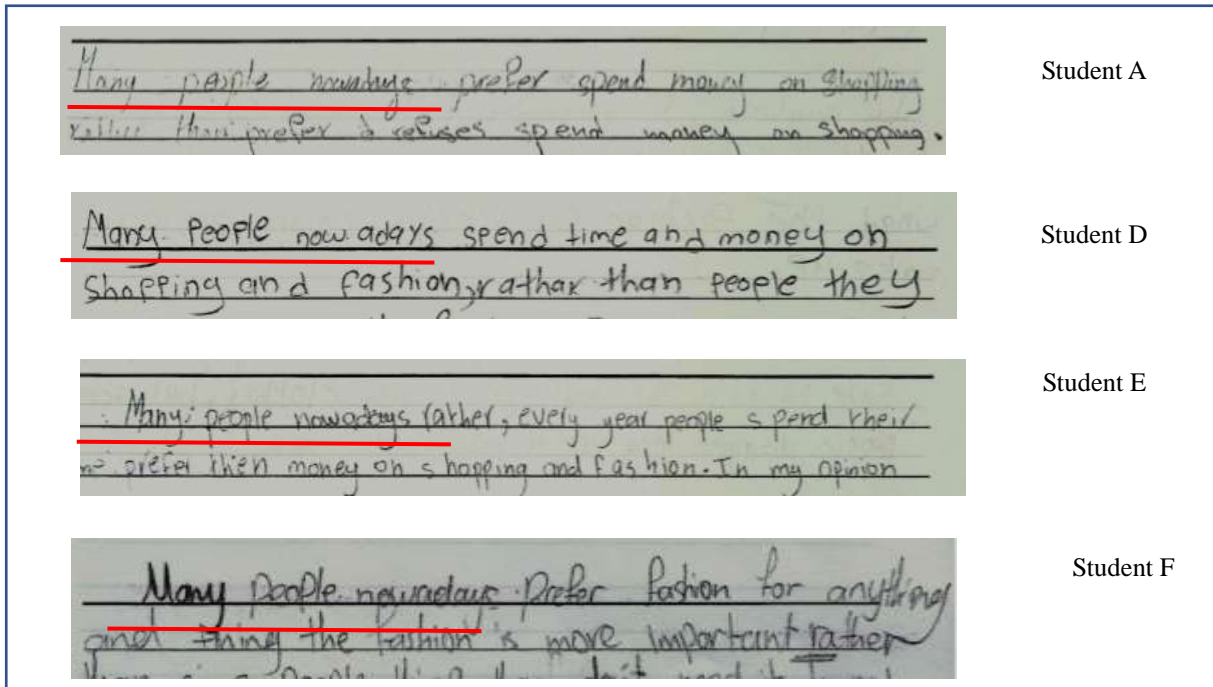 Many people nowadays prefer spend money on shopping
rather than prefer refuses spend money on shopping.
Student A
Many People now adays spend time and money on
shopping and fashion, rathar than people they
Student D
Many people nowadays rather, every year people spend their
prefer then money on shopping and fashion. In my opinion
Student E
Many people nowadays prefer fashion for anything
and thing the fashion is more important rather
Student F